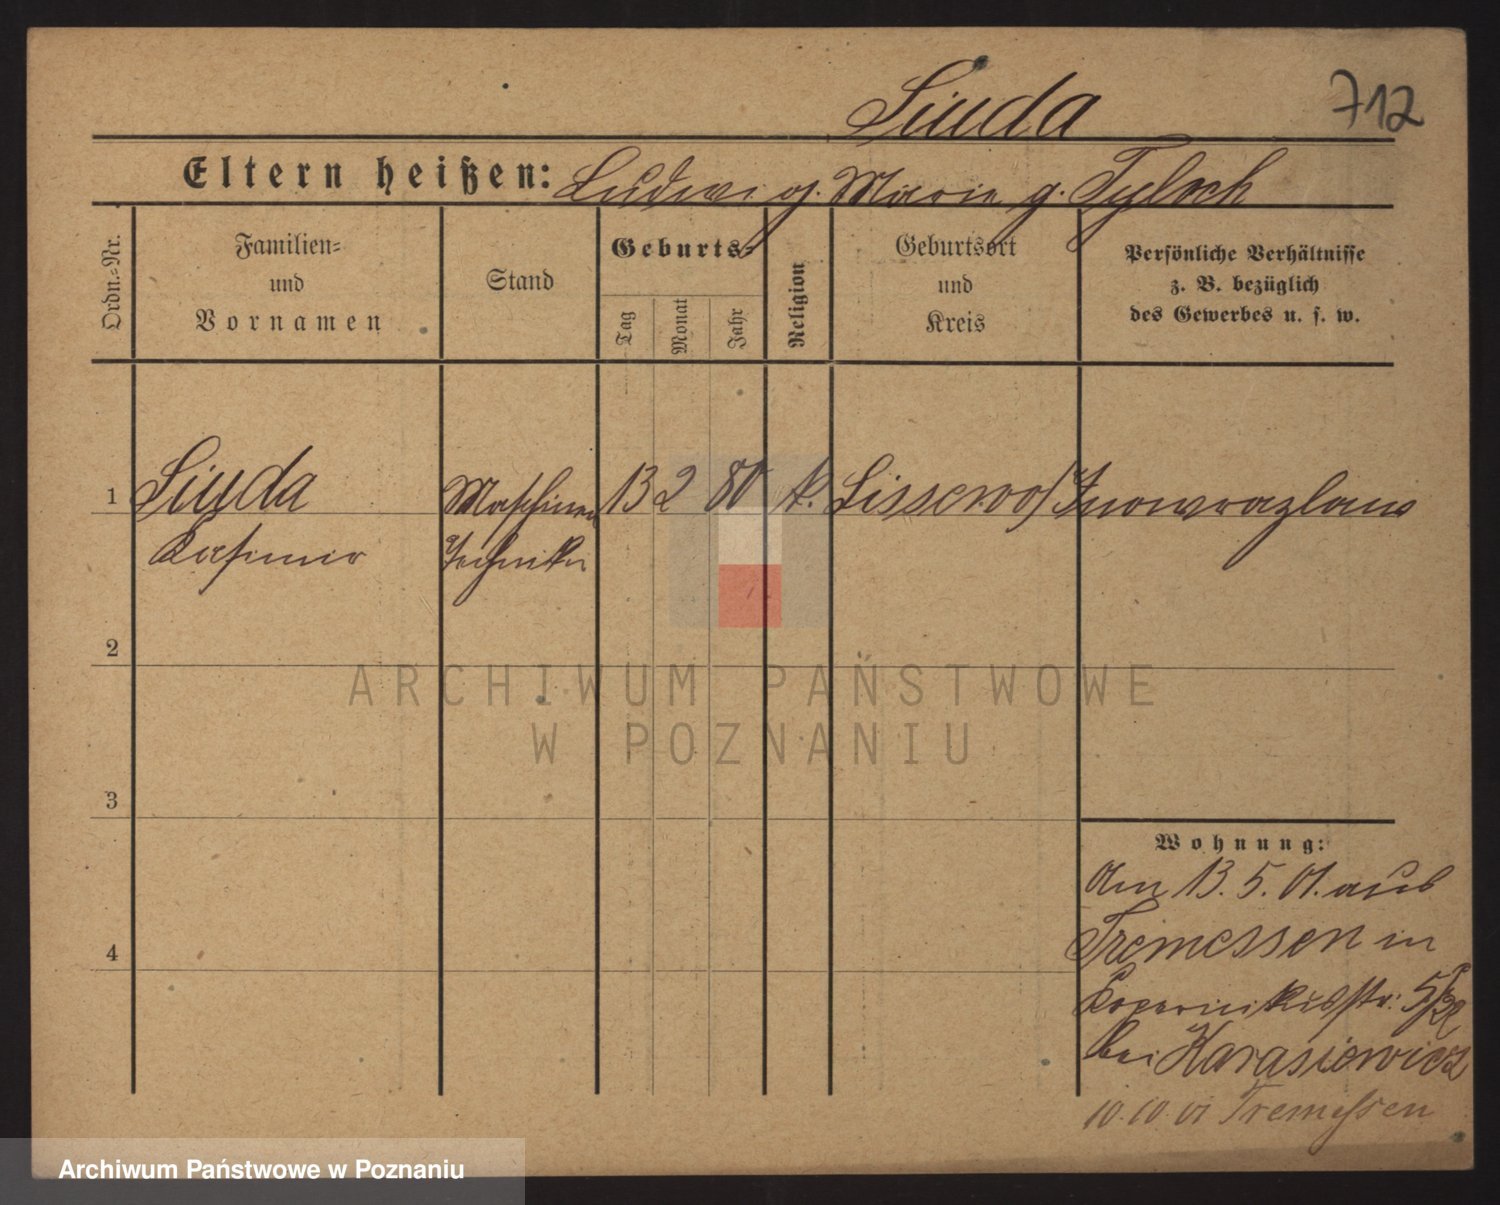 Siuda
712
Eltern heißen: Ludwig. Marie g. Tyloch
Ordn.-Nr.
Familien-
und
Vornamen
Stand
Geburts-
Tag
Monat
Jahr
Religion
Geburtsort
und
Kreis
Persönliche Verhältnisse
z. B. bezüglich
des Gewerbes u. s. w.
1 Siuda Maschinen 13 2 80 k. Lissewo / Inowrazlaw
Kasimir Techniker
2
ARCHIWUM PAŃSTWOWE
W POZNANIU
3
Wohnung:
Am 13.5.01. aus
4
Tremessen in
Kopernikusstr: 5
bei Karasiewicz
10.10.01 Tremessen
Archiwum Państwowe w Poznaniu